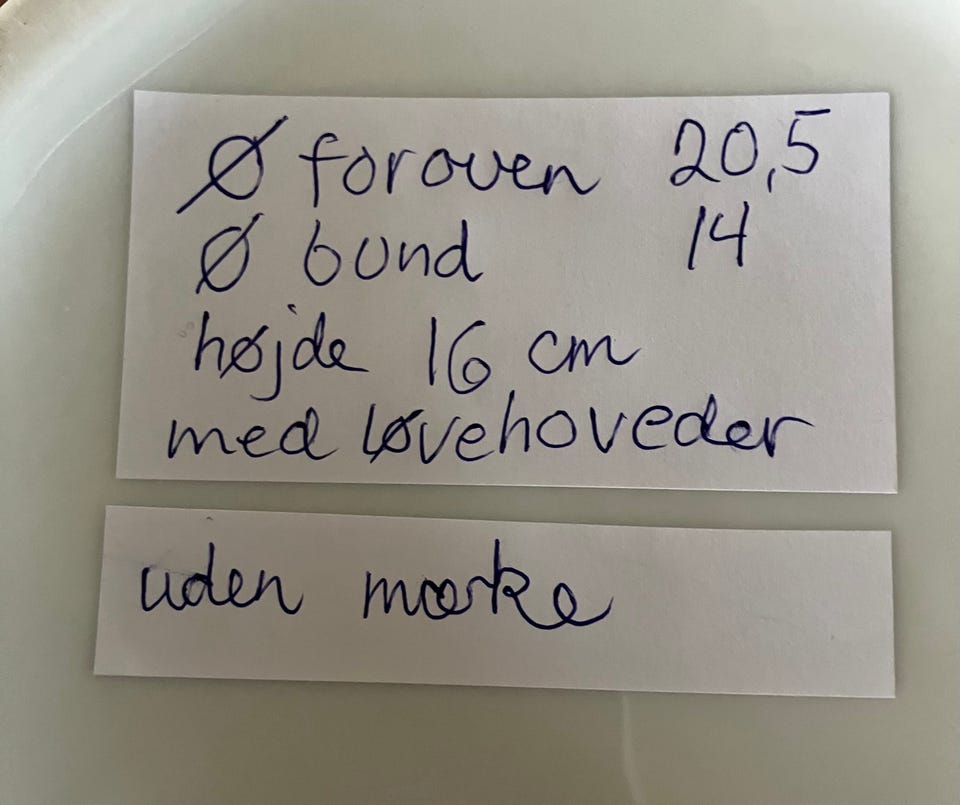 Ø foroven 20,5
Ø bund 14
højde 16 cm
med løvehoveder
uden mærke